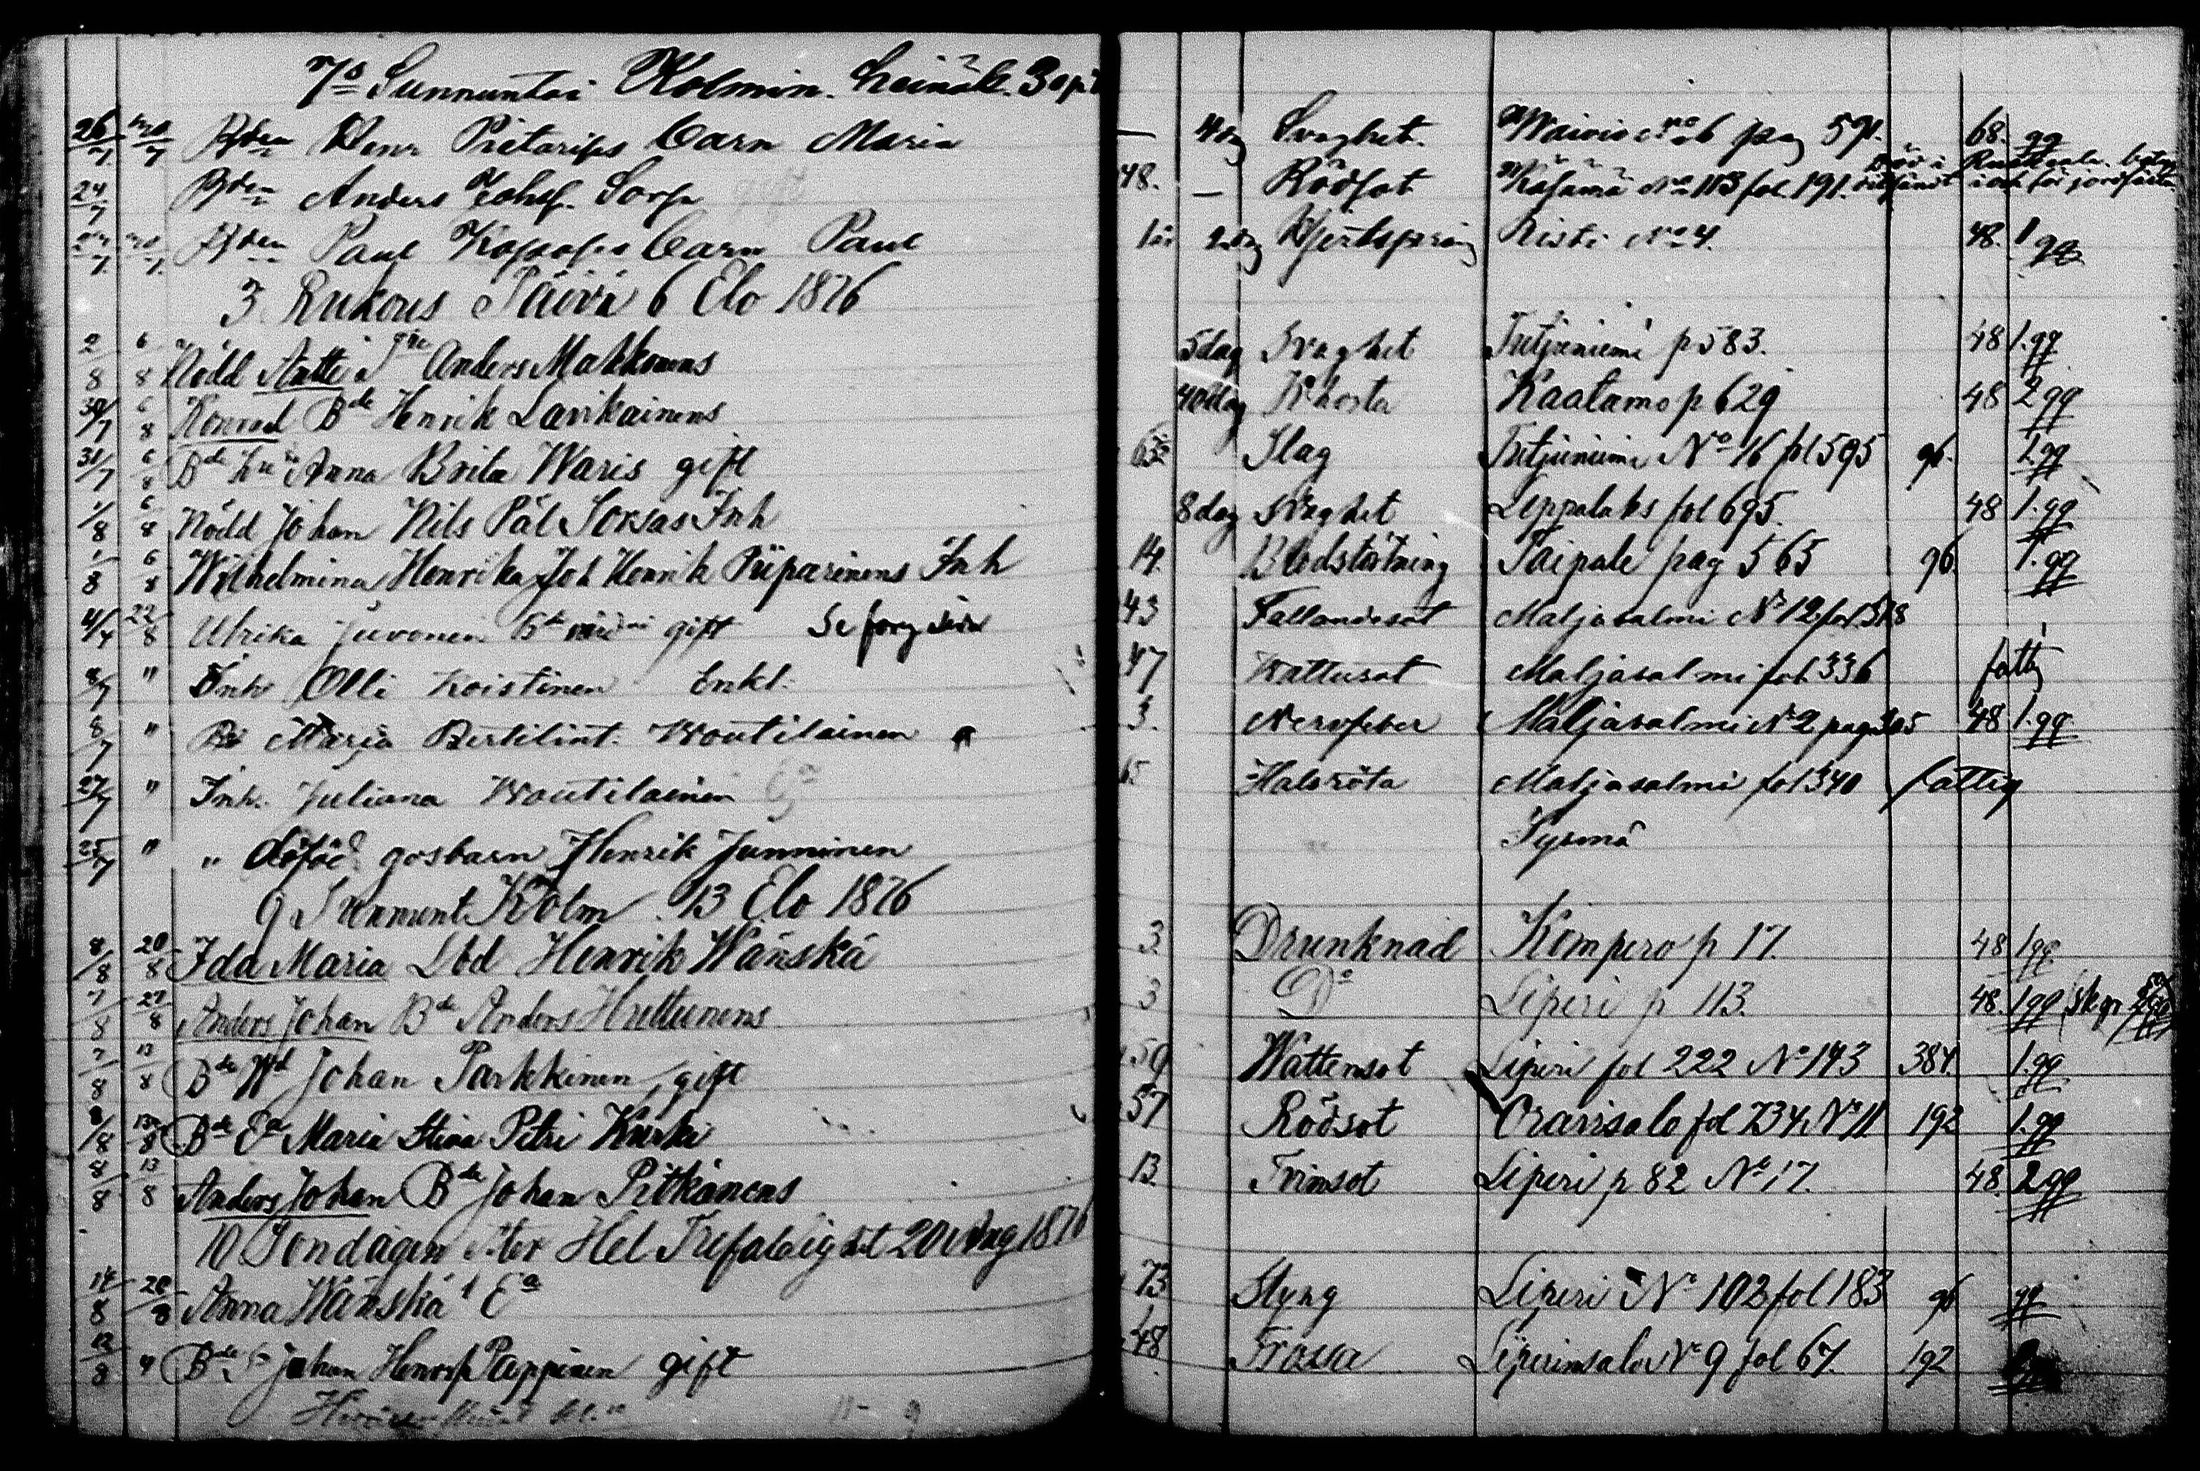 7s Sunnuntai Kolmin. heinäk. 30 p
26/7 30/7 Bden Henr Pietarises barn Maria — 4 dg Svaghet. Waivio No 6 pag 591. 68. gg
24/7 Bden Anders Johsf. Sorsa 48. — Rödsot Käsämä No 113 fol. 191.
27/7 30/7 Bden Paul Kossoses barn Paul 1 år 2 dag Risti No 4. 48. 1 gg
3 Rukous Päivä 6 Elo 1876
2/8 6/8 Nödd Antti Anders Makkonens 5 dag Svaghet p 583. 48 1.gg
30/7 6/8 Konrad Bde Henrik Lavikainens 40 dag Khosta Kaatamo p 629 48 2 gg
31/7 6/8 Bde Anna Brita Waris gift 63 Slag No 16 fol 595 96. 1 gg
1/8 6/8 Nödd Johan Nils Pål Sorsas Inh 8 dag Svaghet Leppalaks fol 695. 48 1.gg
1/8 6/8 Wilhelmina Henrika Joh Henrik Piiparinens Inh 14 Blodstörtning Taipale pag 565 96. 1.gg
4/7 22/8 Ulrika Juvonen gift Se foreg sida 43 Fallandesot Maljasalmi No 12 fol 318
8/7 " Inh Olli Koistinen Enkl. 47 Wattusot Maljasalmi fol 336 fattig
8/7 " Bd Marja Bertilint. Woutilainen 3. Nervfeber Maljasalmi No 2 pag 305 48 1.gg
27/7 " Inh. Juliana Woutilainen 65 Halsröta Maljasalmi fol 340 fattig
25/7 " " döföd gosbarn Henrik Junninen Sysmä
9 Sunnunt Kolm. 13 Elo 1876
8/8 20/8 Ida Maria Lbd Henrik Wänskä 3. Drunknad Kompero p 17. 48 1 gg
7/8 27/8 Anders Johan Bde Anders Huttunens 3 Do Liperi p 113. 48. 1 gg
7/8 13/8 Bde Johan Parkkinen, gift 59 Wattensot Liperi fol 222 No 143 384. 1.gg
8/8 13/8 Bde Ea Maria Stina Petri Kurki 57 Rödsot Oravisalo fol 734 No 11 192 1.gg
8/8 13/8 Anders Johan Bde Johan Pitkänens 13 Trimsot Liperi p 82 No 17. 48. 2 gg
10 Söndagen efter Hel Trefaldighet 20 Aug 1876
14/8 20/8 Anna Wänskä Ea 73 Styng Liperi No 102 fol 183 96 gg
12/8 " Bde Johan Henrsf Pappinen gift 48 Frossa Liperinsalo No 9 fol 67. 192